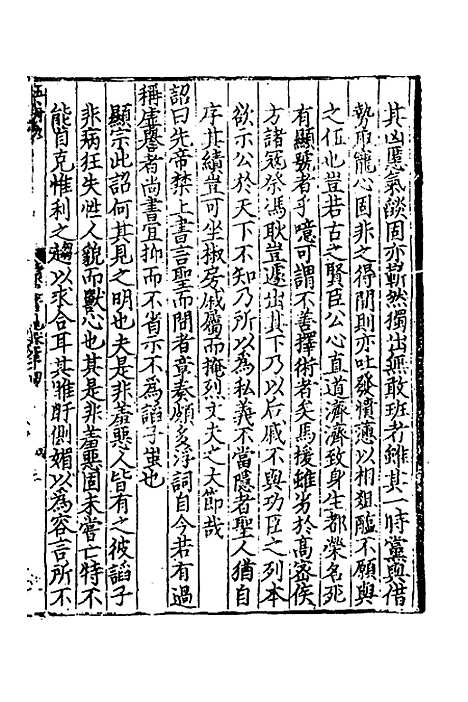 其凶慝氣燄固亦嶄然獨出無敢班者雖其一時黨與借
勢取寵心固非之得間則亦吐發憤懣以相狙齕不願與
之伍也豈若古之賢臣公心直道濟濟致身生都榮名死
有顯號者乎噫可謂不善擇術者矣馬援雖劣於高密侯
方諸冦祭馮耿豈遽出其下乃以后戚不與功臣之列本
欲示公於天下不知乃所以為私義不當隱者聖人猶自
序其績豈可坐椒房戚屬而掩烈丈夫之大節哉
詔曰先帝禁上書言聖而間者章奏頗多浮詞自今若有過
稱虛譽者尚書宜抑而不省示不為諂子蚩也
顯宗此詔何其見之明也夫是非羞惡人皆有之彼諂子
非病狂失性人貌而獸心也其是非羞惡固未嘗亡特不
能自克惟利之趨以求合耳其睢盱側媚以為容言所不